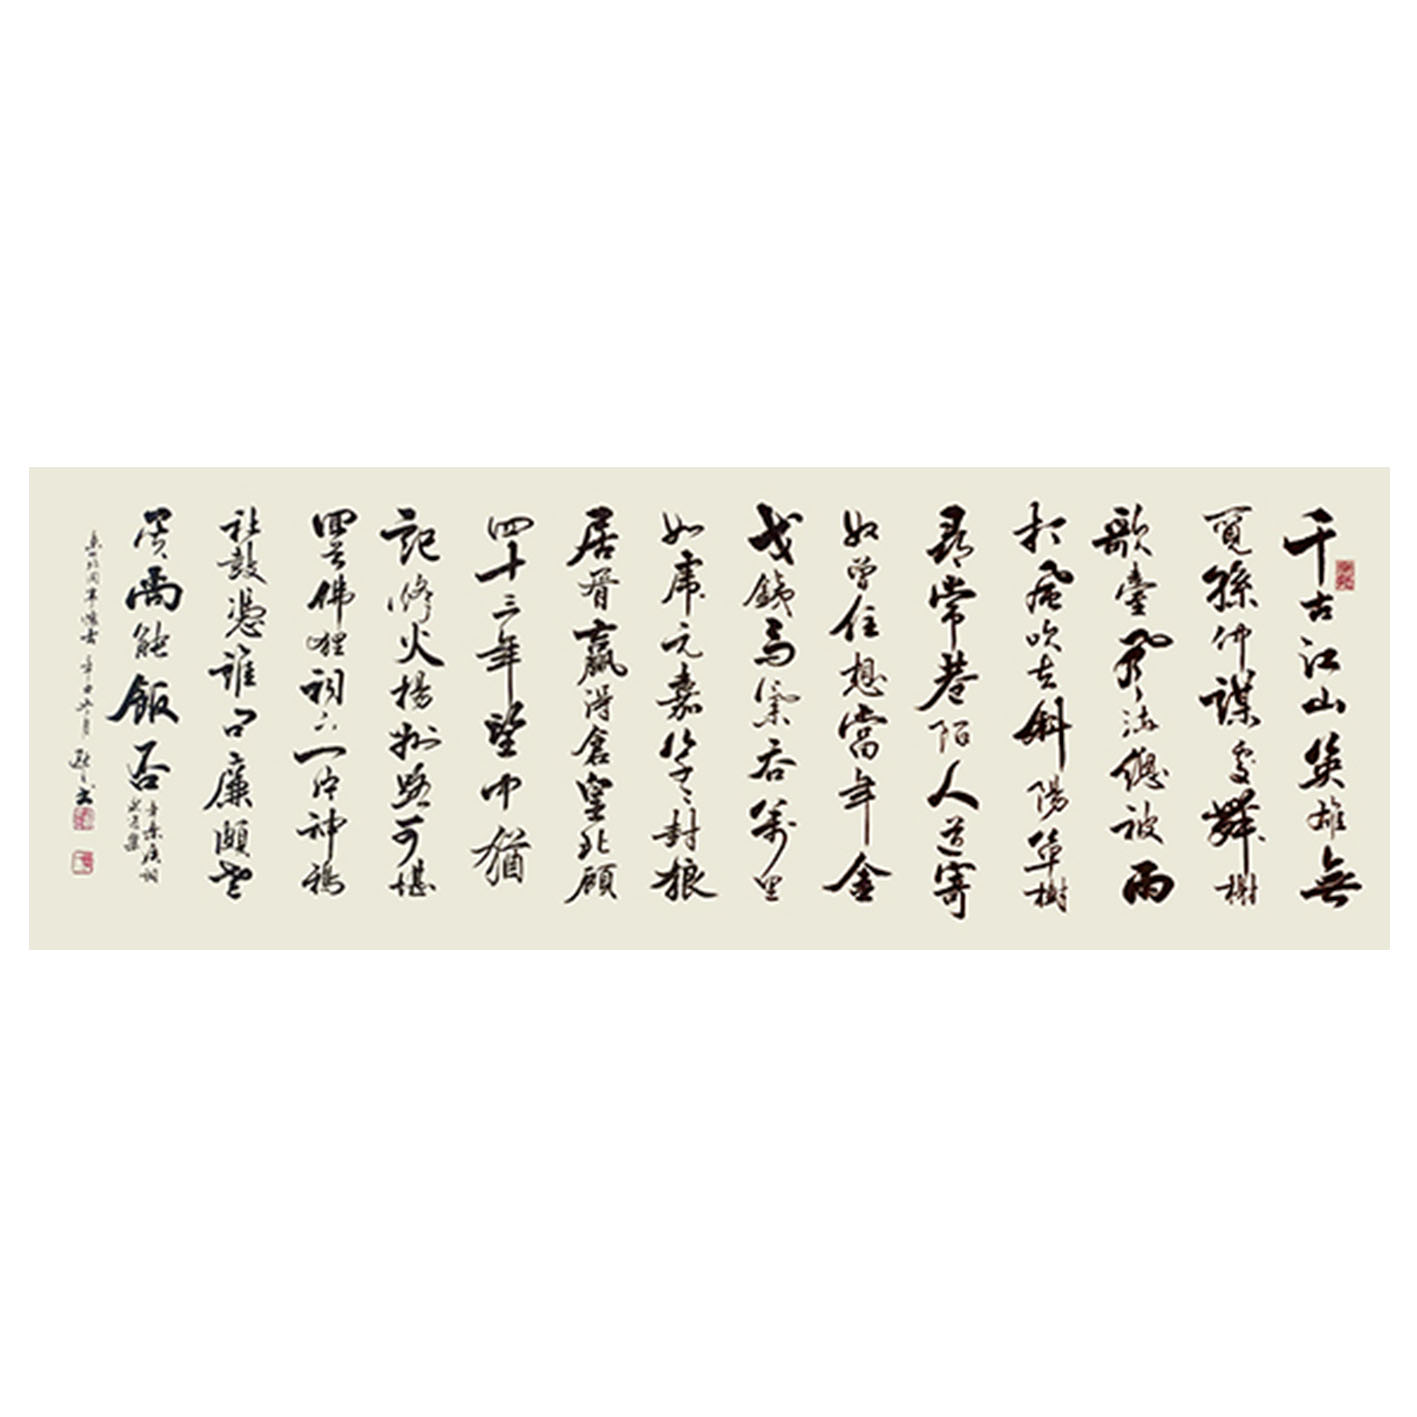 千古江山英雄無
覓孫仲謀處舞榭
歌臺風流總被雨
打風吹去斜陽草樹
尋常巷陌人道寄
奴曾住想當年金
戈鐵馬氣吞萬里
如虎元嘉草草封狼
居胥贏得倉皇北顧
四十三年望中猶
記烽火揚州路可堪
回首佛狸祠下一片神鴉
社鼓憑誰問廉頗老
矣尚能飯否
辛棄疾詞
永遇樂
京口北固亭懷古 書